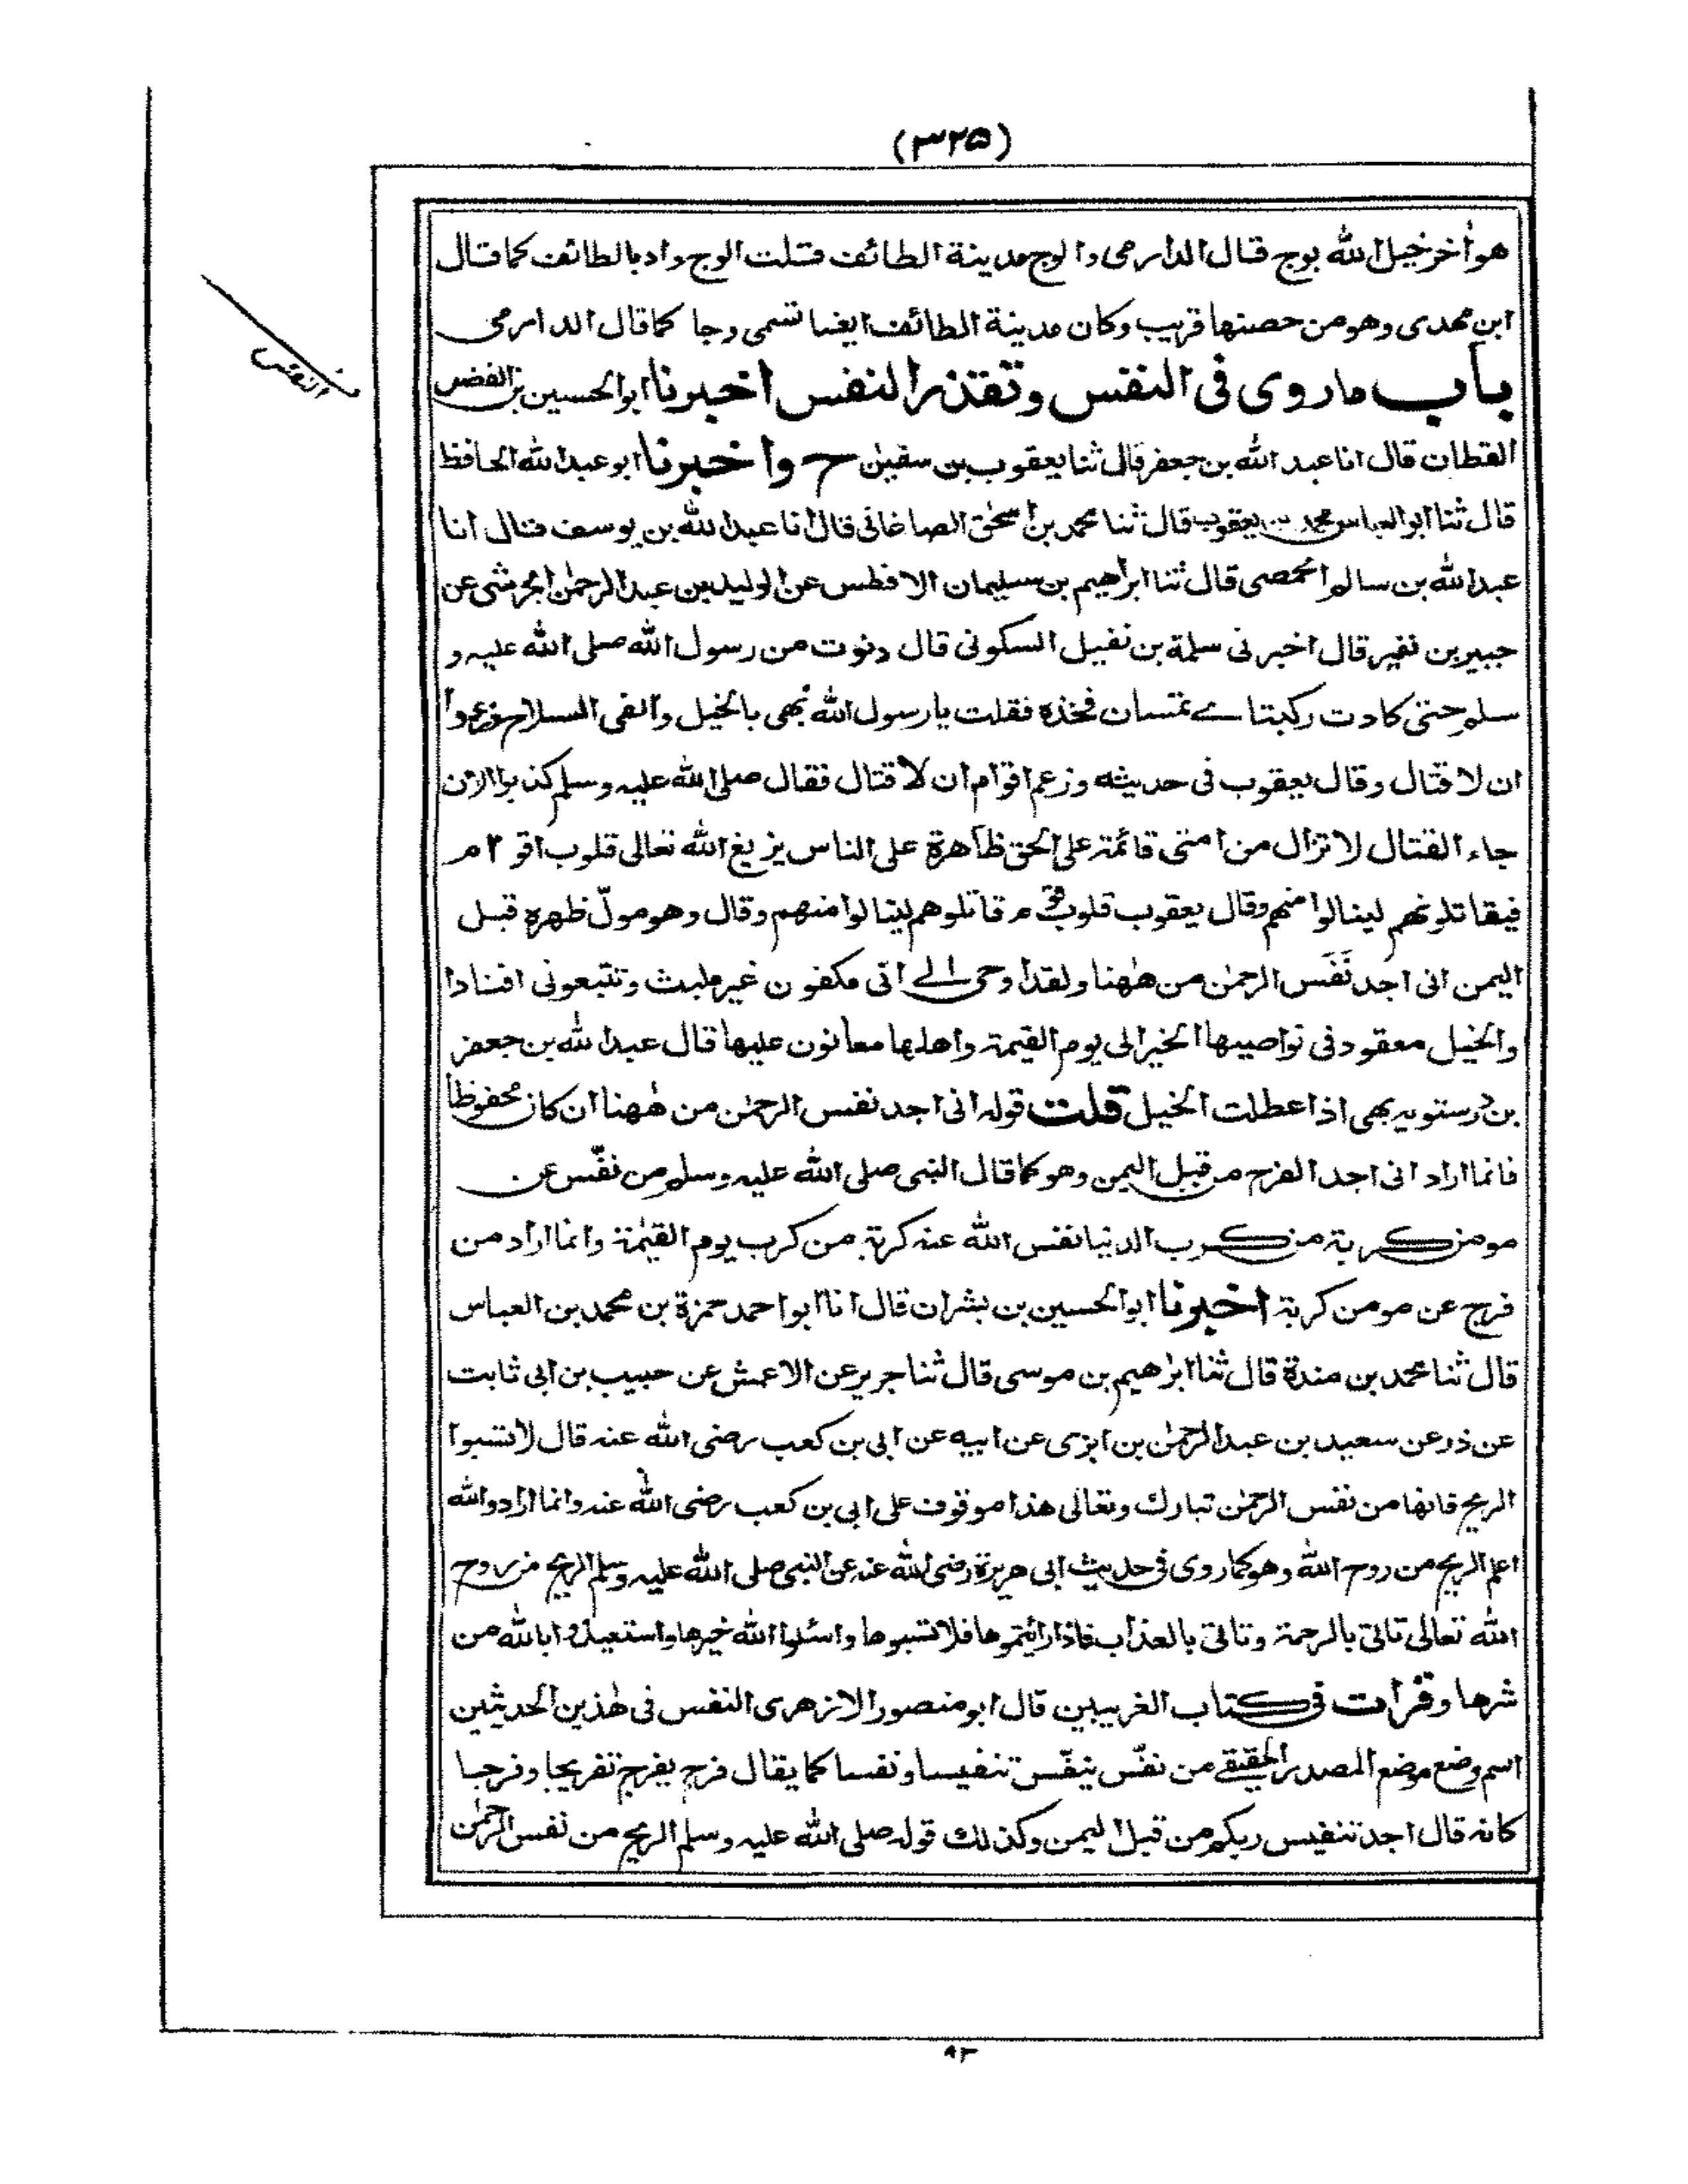 (٣٢٥)
هو اٰخر خيل الله بوج قال الدارمى والوج مدينة الطائف قلت الوج وادبالطائف كما قال
ابن مهدى وهو من حصنها قريب وكان مدينة الطائف ايضا تسمى وجا كما قال الدارمى
باب ماروى فى النفس وتقذر النفس اخبرنا ابوالحسين بن الفضل
القطان قال انا عبد الله بن جعفر قال ثنا يعقوب بن سفيٰن ح واخبرنا ابو عبدالله الحافظ
قال ثنا ابوالعباس محمد بن يعقوب قال ثنا محمد بن اسحٰق الصاغانى قال انا عبدالله بن يوسف قال انا
عبدالله بن سالم الحمصى قال ثنا ابراهيم بن سليمان الافطس عن الوليد بن عبدالرحمٰن الجرشى عن
جبير بن نفير قال اخبرنى سلمة بن نفيل السكونى قال دنوت من رسول الله صلى الله عليه و
سلم حتى كادت ركبتاى تمسان فخذه فقلت يارسول الله بُهى بالخيل والقى السلاح وزعموا
ان لا قتال وقال يعقوب فى حديثه وزعم اقوام ان لا قتال فقال صلى الله عليه وسلم كذبوا الاٰن
جاء القتال لا تزال من امتى قائمة على الحق ظاهرة على الناس يزيغ الله تعالى قلوب اقوام
فيقاتلونهم لينالوا منهم وقال يعقوب قلوب قوم قاتلوهم لينالوا منهم وقال وهو مولّ ظهره قبل
اليمن انى اجد نَفَس الرحمٰن من هٰهنا ولقد اوحى الى انى مكفون غير ملبث وتتبعونى افنادا
والخيل معقود فى نواصيها الخير الى يوم القيٰمة واهلها معانون عليها قال عبدالله بن جعفر
بن درستويه بهى اذا عطلت الخيل قلت قوله انى اجد نفس الرحمٰن من هٰهنا ان كان محفوظا
فانما اراد انى اجد الفرح من قبل اليمن وهو كما قال النبى صلى الله عليه وسلم من نفّس عن
مومن كربة من كرب الدنيا نفس الله عنه كربة من كرب يوم القيٰمة وانما اراد من
فرج عن مومن كربة اخبرنا ابوالحسين بن بشران قال انا ابو احمد حمزة بن محمد بن العباس
قال ثنا محمد بن مندة قال ثنا ابرٰهيم بن موسى قال ثنا جرير عن الاعمش عن حبيب بن ابى ثابت
عن ذر عن سعيد بن عبدالرحمٰن بن ابزى عن ابيه عن ابى بن كعب رضى الله عنه قال لا تسبوا
الريح فانها من نفس الرحمٰن تبارك وتعالى هذا موقوف على ابى بن كعب رضى الله عنه وانما اراد والله
اعلم الريح من روح الله وهو كما روى فى حديث ابى هريرة رضى الله عنه عن النبى صلى الله عليه وسلم الريح من روح
الله تعالى تاتى بالرحمة وتاتى بالعذاب فاذا رائيتموها فلا تسبوها واسئلوا الله خيرها واستعيذوا بالله من
شرها وقرات فى كتاب الغريبين قال ابو منصور الازهرى النفس فى هٰذين الحديثين
اسم وضع موضع المصدر الحقيقى من نفّس ينفّس تنفيسا ونفسا كما يقال فرج يفرج تفريجا وفرجا
كانه قال اجد تنفيس ربكم من قبل اليمن وكذلك قوله صلى الله عليه وسلم الريح من نفس الرحمٰن
النفس